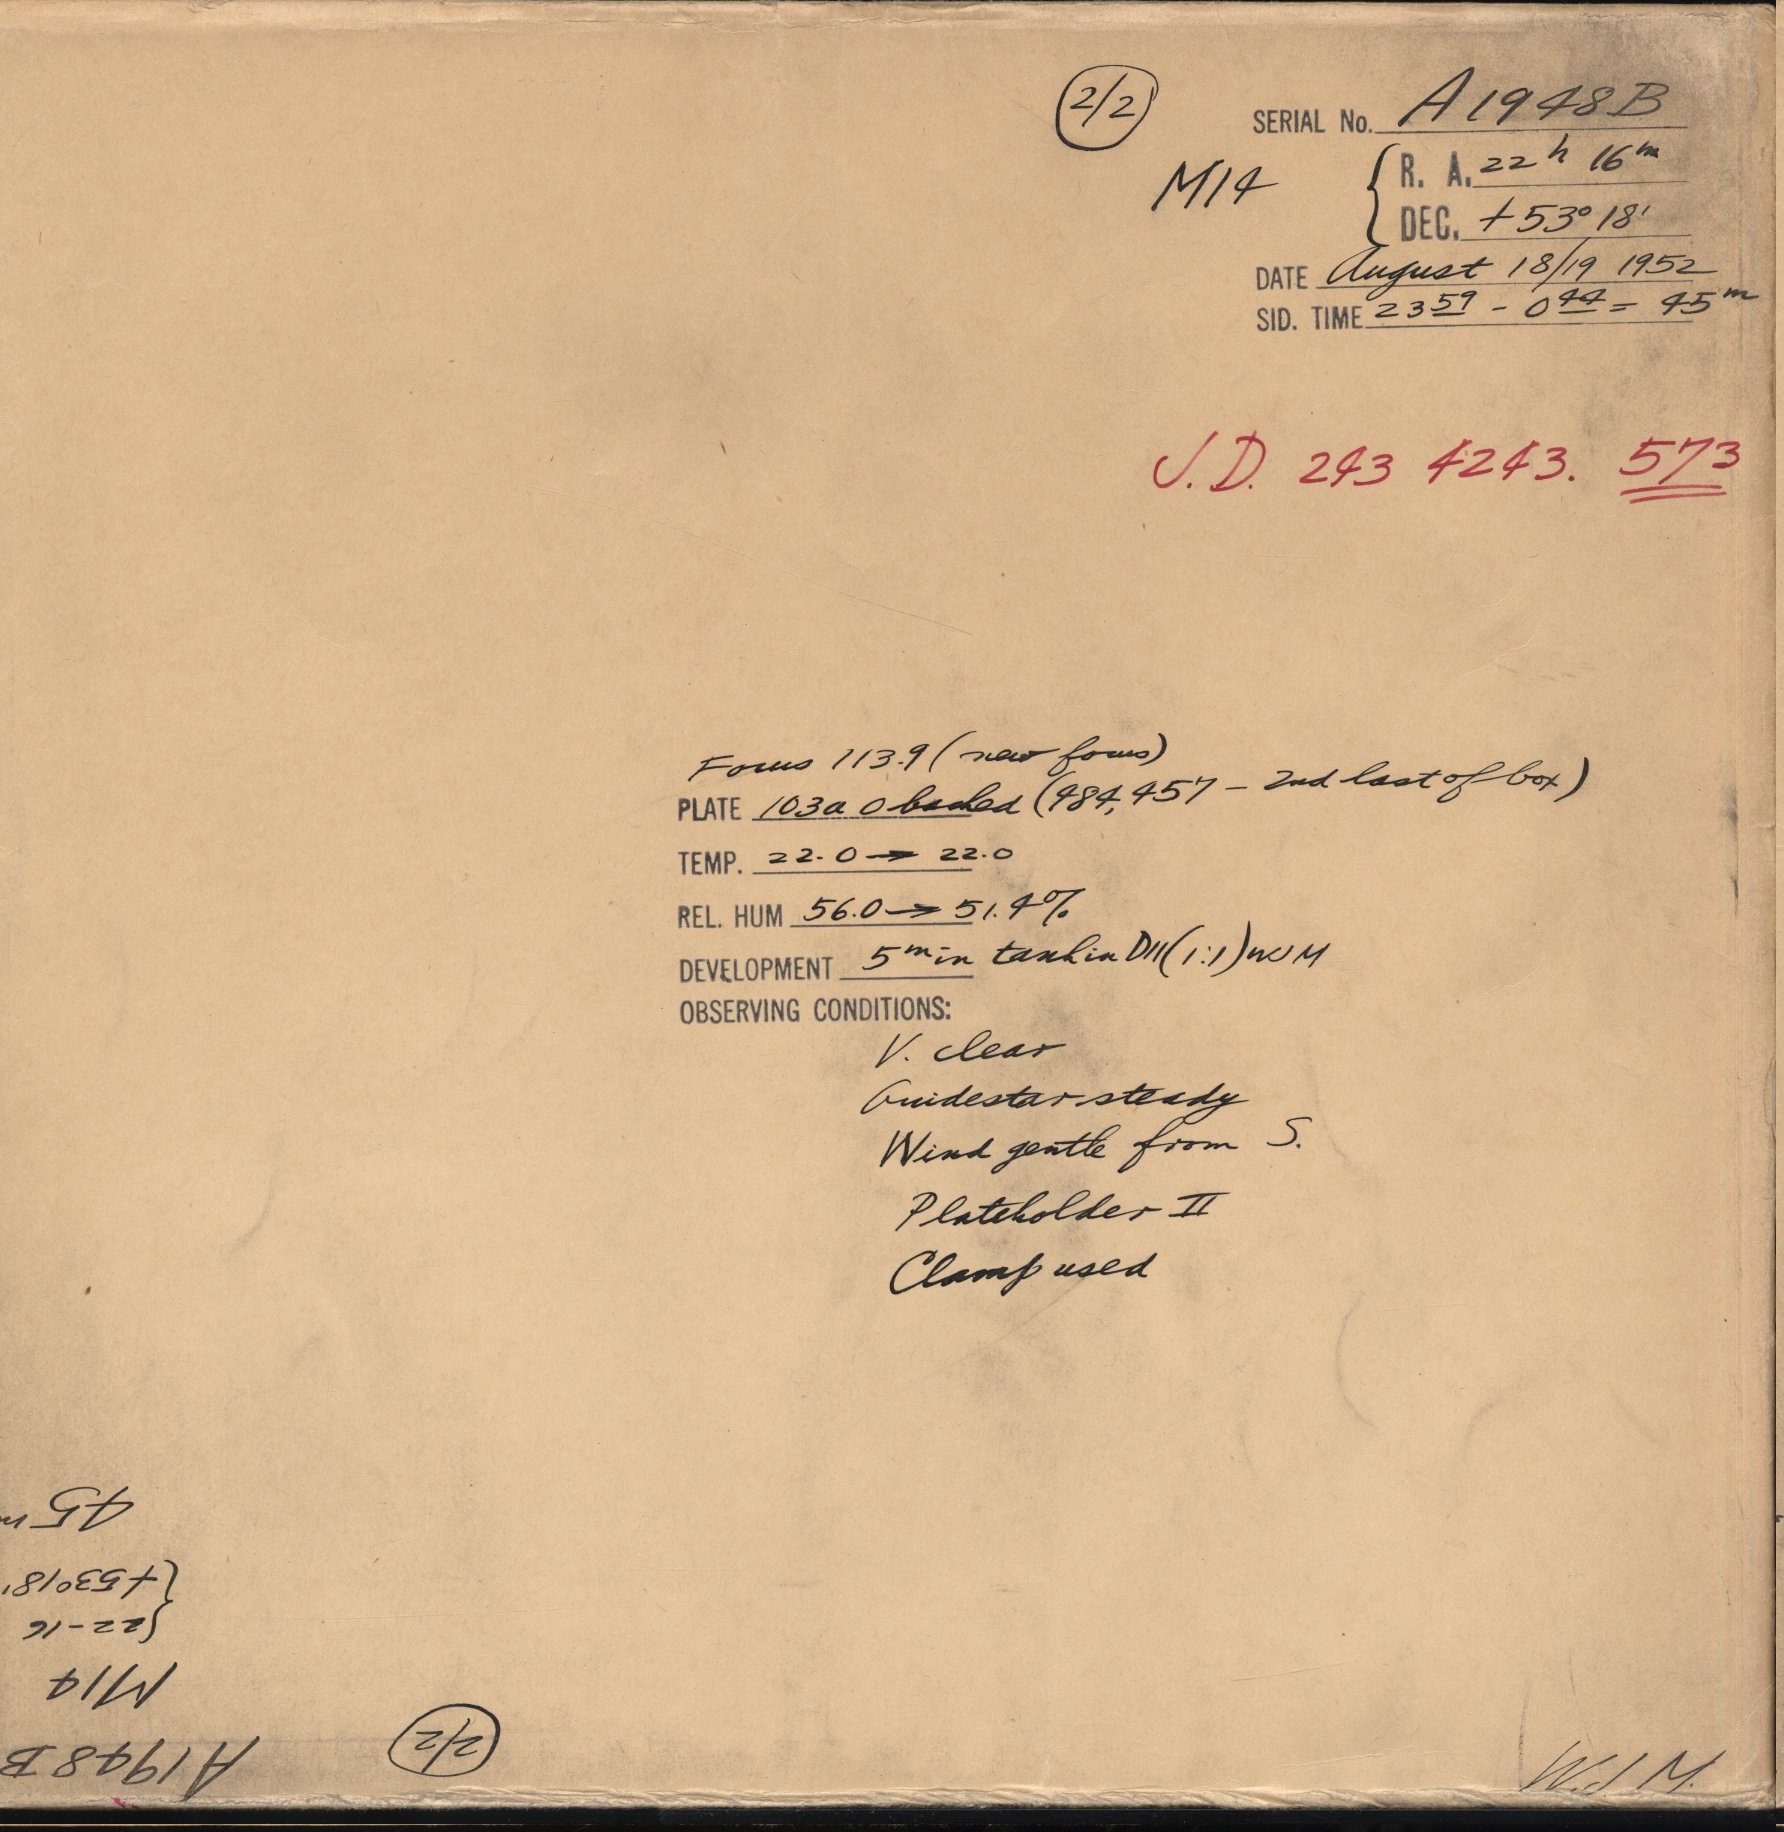 2/2
SERIAL No. A1948B
M14
R. A. 22h 16m
DEC. +53° 18'
DATE August 18/19 1952
SID. TIME 23 59 - 0 44 = 45m
J.D. 243 4243. 573
Focus 113.9 (new focus)
PLATE 103a O backed (484,457 - 2nd last of box)
TEMP. 22.0 → 22.0
REL. HUM 56.0 → 51.4%
DEVELOPMENT 5m in tank in D11 (1:1) WJM
OBSERVING CONDITIONS:
V. clear
Guidestar steady
Wind gentle from S.
Plateholder II
Clamp used
45m
+53°18'
22-16
M14
A1948B
2/2
WJM.